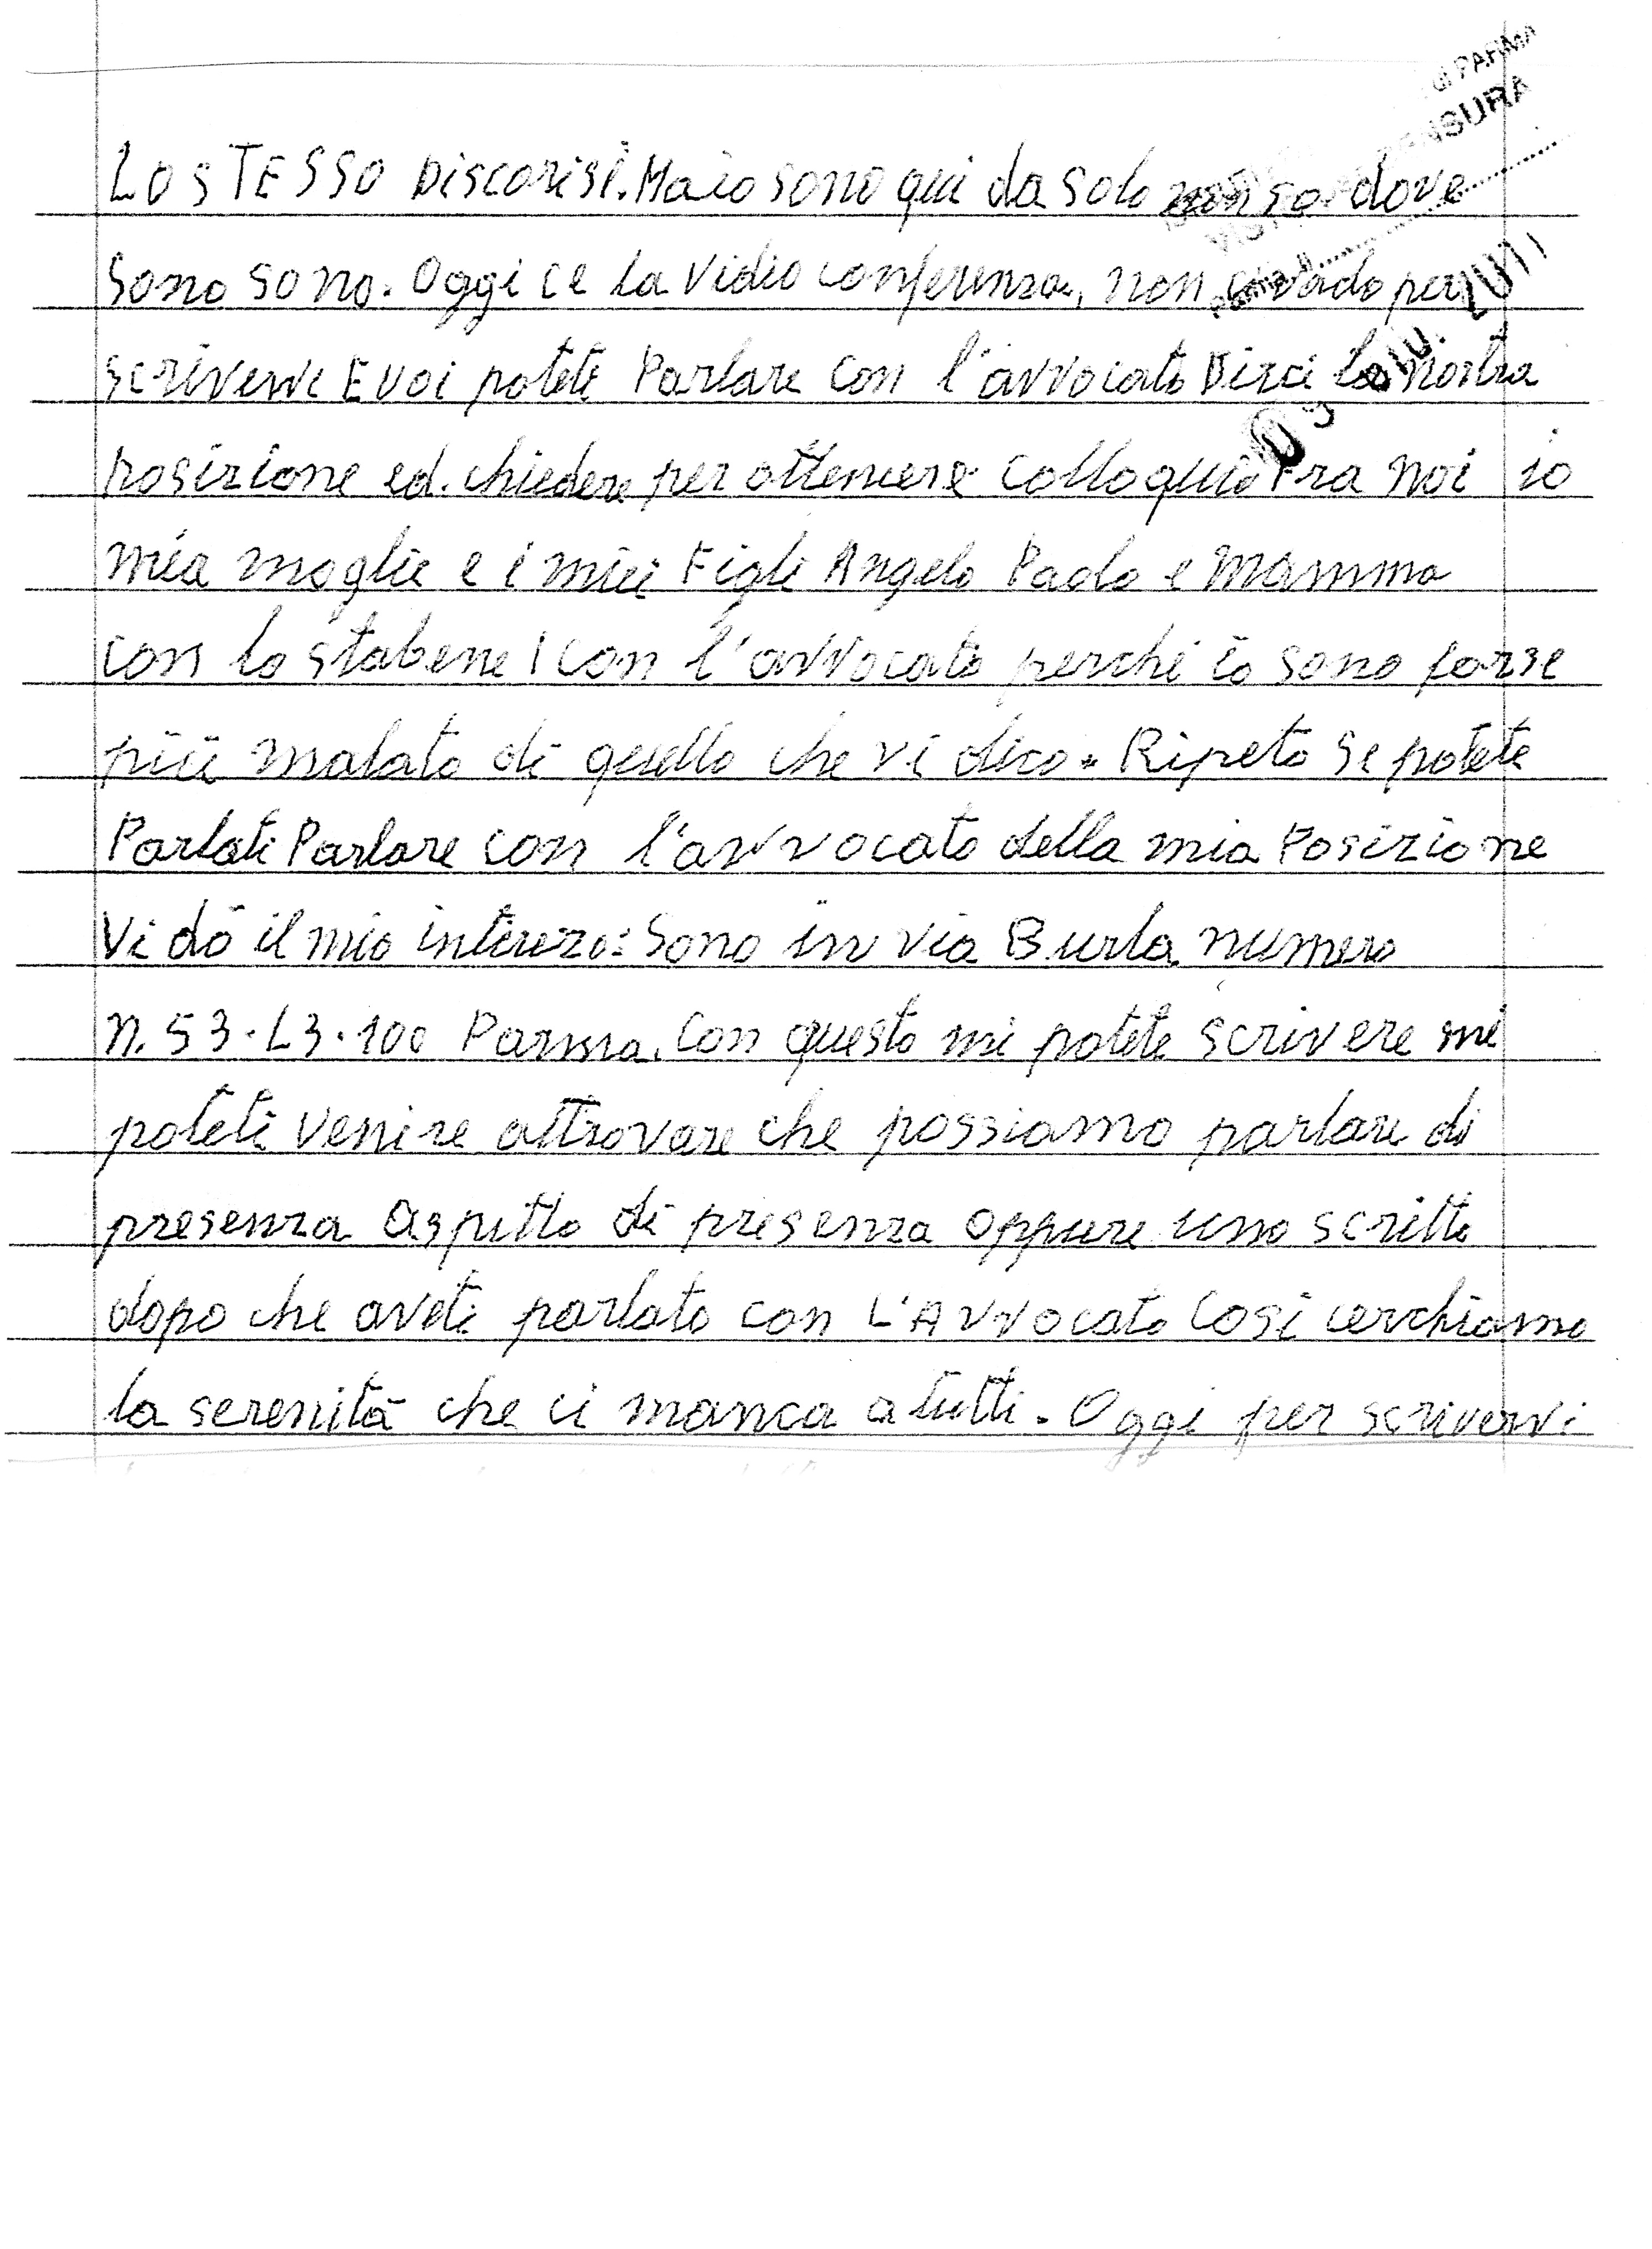 di PARMA
CENSURA
LO STESSO Discorisi. Ma io sono qui da solo non so dove
sono sono. Oggi ce la vidio conferenza, non ci vado per
scrivervi E voi potete Parlare con l'avvocato Dirci la nostra
posizione ed. chiedere per ottenere colloquio Fra noi io
mia moglie e i miei Figli Angelo Paolo e mamma
con lo stabene i con l'avvocato perché io sono forse
più malato di quello che vi dico. Ripeto se potete
Parlati Parlare con l'avvocato della mia Posizione
Vi dò il mio intirezo: Sono in via Burla numero
N. 53. L3. 100 Parma. Con questo mi potete scrivere mi
poteti venire attrovare che possiamo parlare di
presenza aspetto di presenza oppure uno scritto
dopo che aveti parlato con L'Avvocato Cosi cerchiamo
la serenità che ci manca a tutti. Oggi per scrivervi